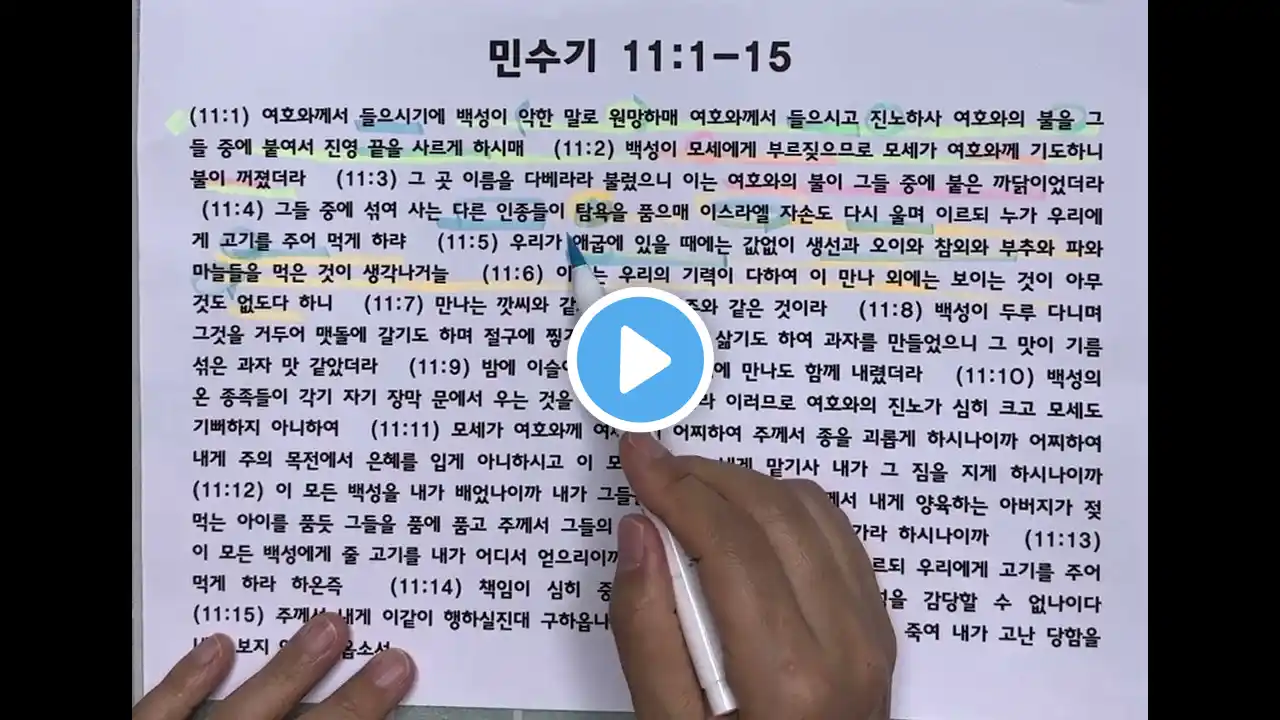 민수기 11:1-15
(11:1) 여호와께서 들으시기에 백성이 악한 말로 원망하매 여호와께서 들으시고 진노하사 여호와의 불을 그
들 중에 붙여서 진영 끝을 사르게 하시매 (11:2) 백성이 모세에게 부르짖으므로 모세가 여호와께 기도하니
불이 꺼졌더라 (11:3) 그 곳 이름을 다베라라 불렀으니 이는 여호와의 불이 그들 중에 붙은 까닭이었더라
(11:4) 그들 중에 섞여 사는 다른 인종들이 탐욕을 품으매 이스라엘 자손도 다시 울며 이르되 누가 우리에
게 고기를 주어 먹게 하랴 (11:5) 우리가 애굽에 있을 때에는 값없이 생선과 오이와 참외와 부추와 파와
마늘들을 먹은 것이 생각나거늘 (11:6) 우리의 기력이 다하여 이 만나 외에는 보이는 것이 아무
것도 없도다 하니 (11:7) 만나는 깟씨와 같은 것이라 (11:8) 백성이 두루 다니며
그것을 거두어 맷돌에 갈기도 하며 절구에 삶기도 하여 과자를 만들었으니 그 맛이 기름
섞은 과자 맛 같았더라 (11:9) 밤에 만나도 함께 내렸더라 (11:10) 백성의
온 종족들이 각기 자기 장막 문에서 우는 것을 이러므로 여호와의 진노가 심히 크고 모세도
기뻐하지 아니하여 (11:11) 모세가 여호와께 어찌하여 주께서 종을 괴롭게 하시나이까 어찌하여
내게 주의 목전에서 은혜를 입게 아니하시고 이 맡기사 내가 그 짐을 지게 하시나이까
(11:12) 이 모든 백성을 내가 배었나이까 내가 내게 양육하는 아버지가 젖
먹는 아이를 품듯 그들을 품에 품고 주께서 그들의 하시나이까 (11:13)
이 모든 백성에게 줄 고기를 내가 어디서 얻으리이까 우리에게 고기를 주어
먹게 하라 하온즉 (11:14) 책임이 심히 감당할 수 없나이다
(11:15) 주께서 내게 이같이 행하실진대 죽여 내가 고난 당함을